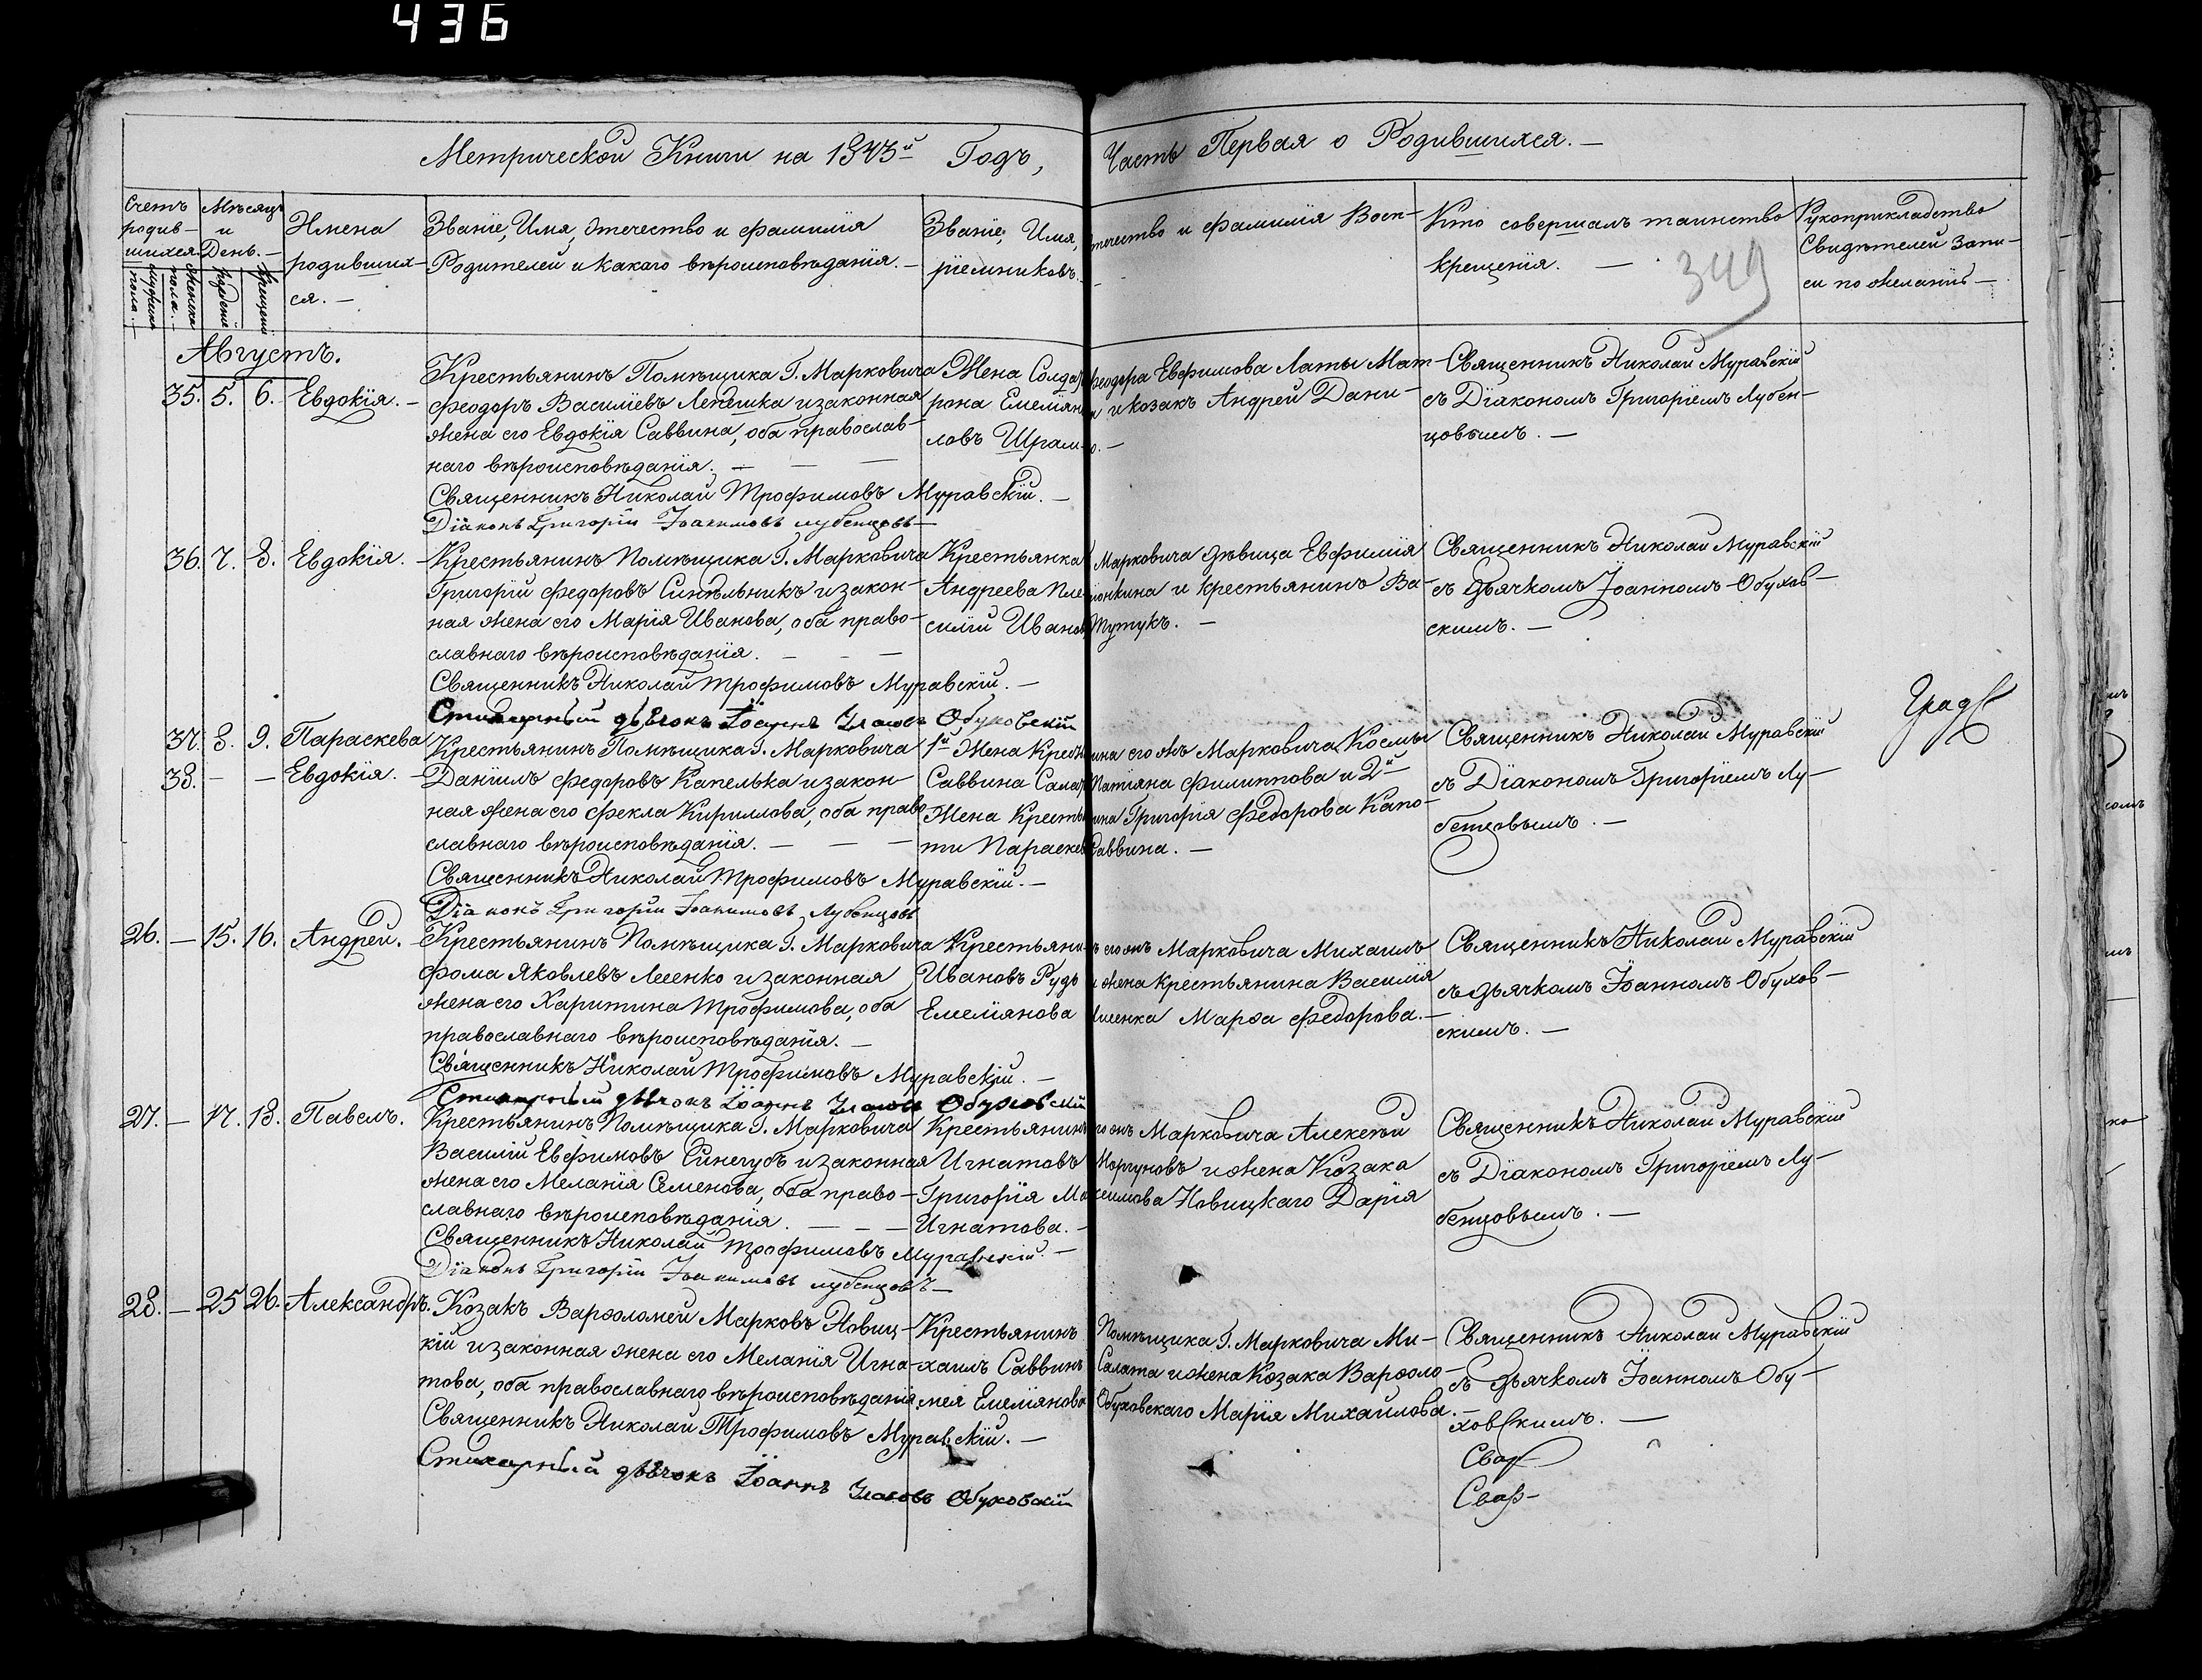 436
Метрической Книги на 1843й Годъ, Часть Первая о Родившихся. —
Счетъ родив-шихся
мужеска пола. —
женска пола. —
Мѣсяцъ и День. —
рожденія
крещенія
Имена родивших-ся. —
Званіе, Имя, Отечество и фамилія
Родителей и какаго вѣроисповѣданія. —
Званіе, Имя, Отечество и фамилія Восп-
ріемниковъ. —
Кто совершалъ таинство
крещенія. —
349
Рукоприкладство
Свидѣтелей Запи-
си по желанію —
Августъ.
35. 5. 6. Евдокія. —
Крестьянинъ Помѣщика Г. Марковича
Феодоръ Василіевъ Лепешка и законная
жена его Евдокія Саввина, оба православ-
наго вѣроисповѣданія. —
Священникъ Николай Трофимовъ Муравскій. —
Діаконъ Григорій Іоакимовъ Лубенцовъ —
Жена Солдата Феодора Евфимова Латы Мат-
рона Емеліянова и козакъ Андрей Дани-
ловъ Шрамко. —
Священникъ Николай Муравскій
съ Діакономъ Григоріемъ Лубен-
цовымъ. —
36. 7. 8. Евдокія. —
Крестьянинъ Помѣщика Г. Марковича
Григорій Федоровъ Синѣльникъ и закон-
ная жена его Марія Иванова, оба право-
славнаго вѣроисповѣданія. —
Священникъ Николай Трофимовъ Муравскій. —
Стихарный дьячокъ Іоаннъ Обуховскій
Крестьянка Марковича дѣвица Евфимія
Андреева и крестьянинъ Ва-
силій Ивановъ Тутукъ. —
Священникъ Николай Муравскій
съ дьячкомъ Іоанномъ Обухов-
скимъ. —
37. 8. 9. Параскева
38. — — Евдокія. —
Крестьянинъ Помѣщика Г. Марковича
Даніилъ Федоровъ Капелька и закон-
ная жена его Фекла Кириллова, оба право-
славнаго вѣроисповѣданія. —
Священникъ Николай Трофимовъ Муравскій. —
Діаконъ Григорій Іоакимовъ Лубенцовъ
1й Жена Крестьянина его жъ Марковича, Космы
Саввина Салаты Татіяна Филиппова и 2й
Жена Крестьянина Григорія Федорова Капо-
ти Параскева Саввина. —
Священникъ Николай Муравскій
съ Діакономъ Григоріемъ Лу-
бенцовымъ. —
26. — 15. 16. Андрей. —
Крестьянинъ Помѣщика Г. Марковича
Фома Яковлевъ и законная
жена его Харитина Трофимова, оба
православнаго вѣроисповѣданія. —
Священникъ Николай Трофимовъ Муравскій. —
Стихарный дьячокъ Іоаннъ Обуховскій
Крестьянинъ его жъ Марковича Михаилъ
Ивановъ Рудь и жена крестьянина Василія
Емеліянова Марѳа Федорова. —
Священникъ Николай Муравскій
съ дьячкомъ Іоанномъ Обухов-
скимъ. —
27. — 17. 18. Павелъ.
Крестьянинъ Помѣщика Г. Марковича
Василій Евфимовъ Синегубъ и законная
жена его Меланія Семенова, оба право-
славнаго вѣроисповѣданія. —
Священникъ Николай Трофимовъ Муравскій. —
Діаконъ Григорій Іоакимовъ Лубенцовъ —
Крестьянинъ его жъ Марковича Алексѣй
Игнатовъ Моргуновъ и жена Козака
Григорія Максимова Новицкаго Дарія
Игнатова. —
Священникъ Николай Муравскій
съ Діакономъ Григоріемъ Лу-
бенцовымъ. —
28. — 25 26. Александръ.
Козакъ Варѳоломей Марковъ Новиц-
кій и законная жена его Меланія Игна-
това, оба православнаго вѣроисповѣданія.
Священникъ Николай Трофимовъ Муравскій. —
Стихарный дьячокъ Іоаннъ Обуховскій
Крестьянинъ Помѣщика Г. Марковича Ми-
хаилъ Саввинъ Салата и жена Козака Варѳоло-
мея Емеліянова Обуховскаго Марія Михайлова. —
Священникъ Николай Муравскій
съ дьячкомъ Іоанномъ Обу-
ховскимъ. —